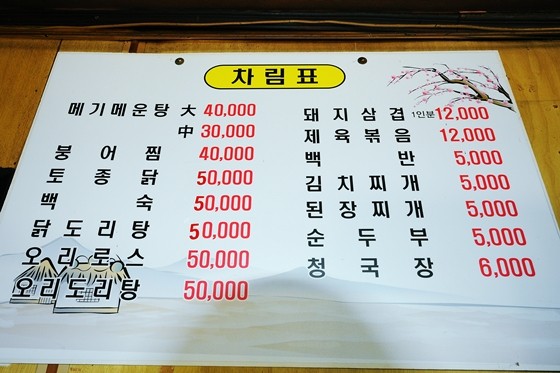 차림표
메기매운탕 大 40,000
中 30,000
붕어찜 40,000
토종닭 50,000
백숙 50,000
닭도리탕 50,000
오리로스 50,000
오리도리탕 50,000
돼지삼겹 1인분 12,000
제육볶음 12,000
백반 5,000
김치찌개 5,000
된장찌개 5,000
순두부 5,000
청국장 6,000